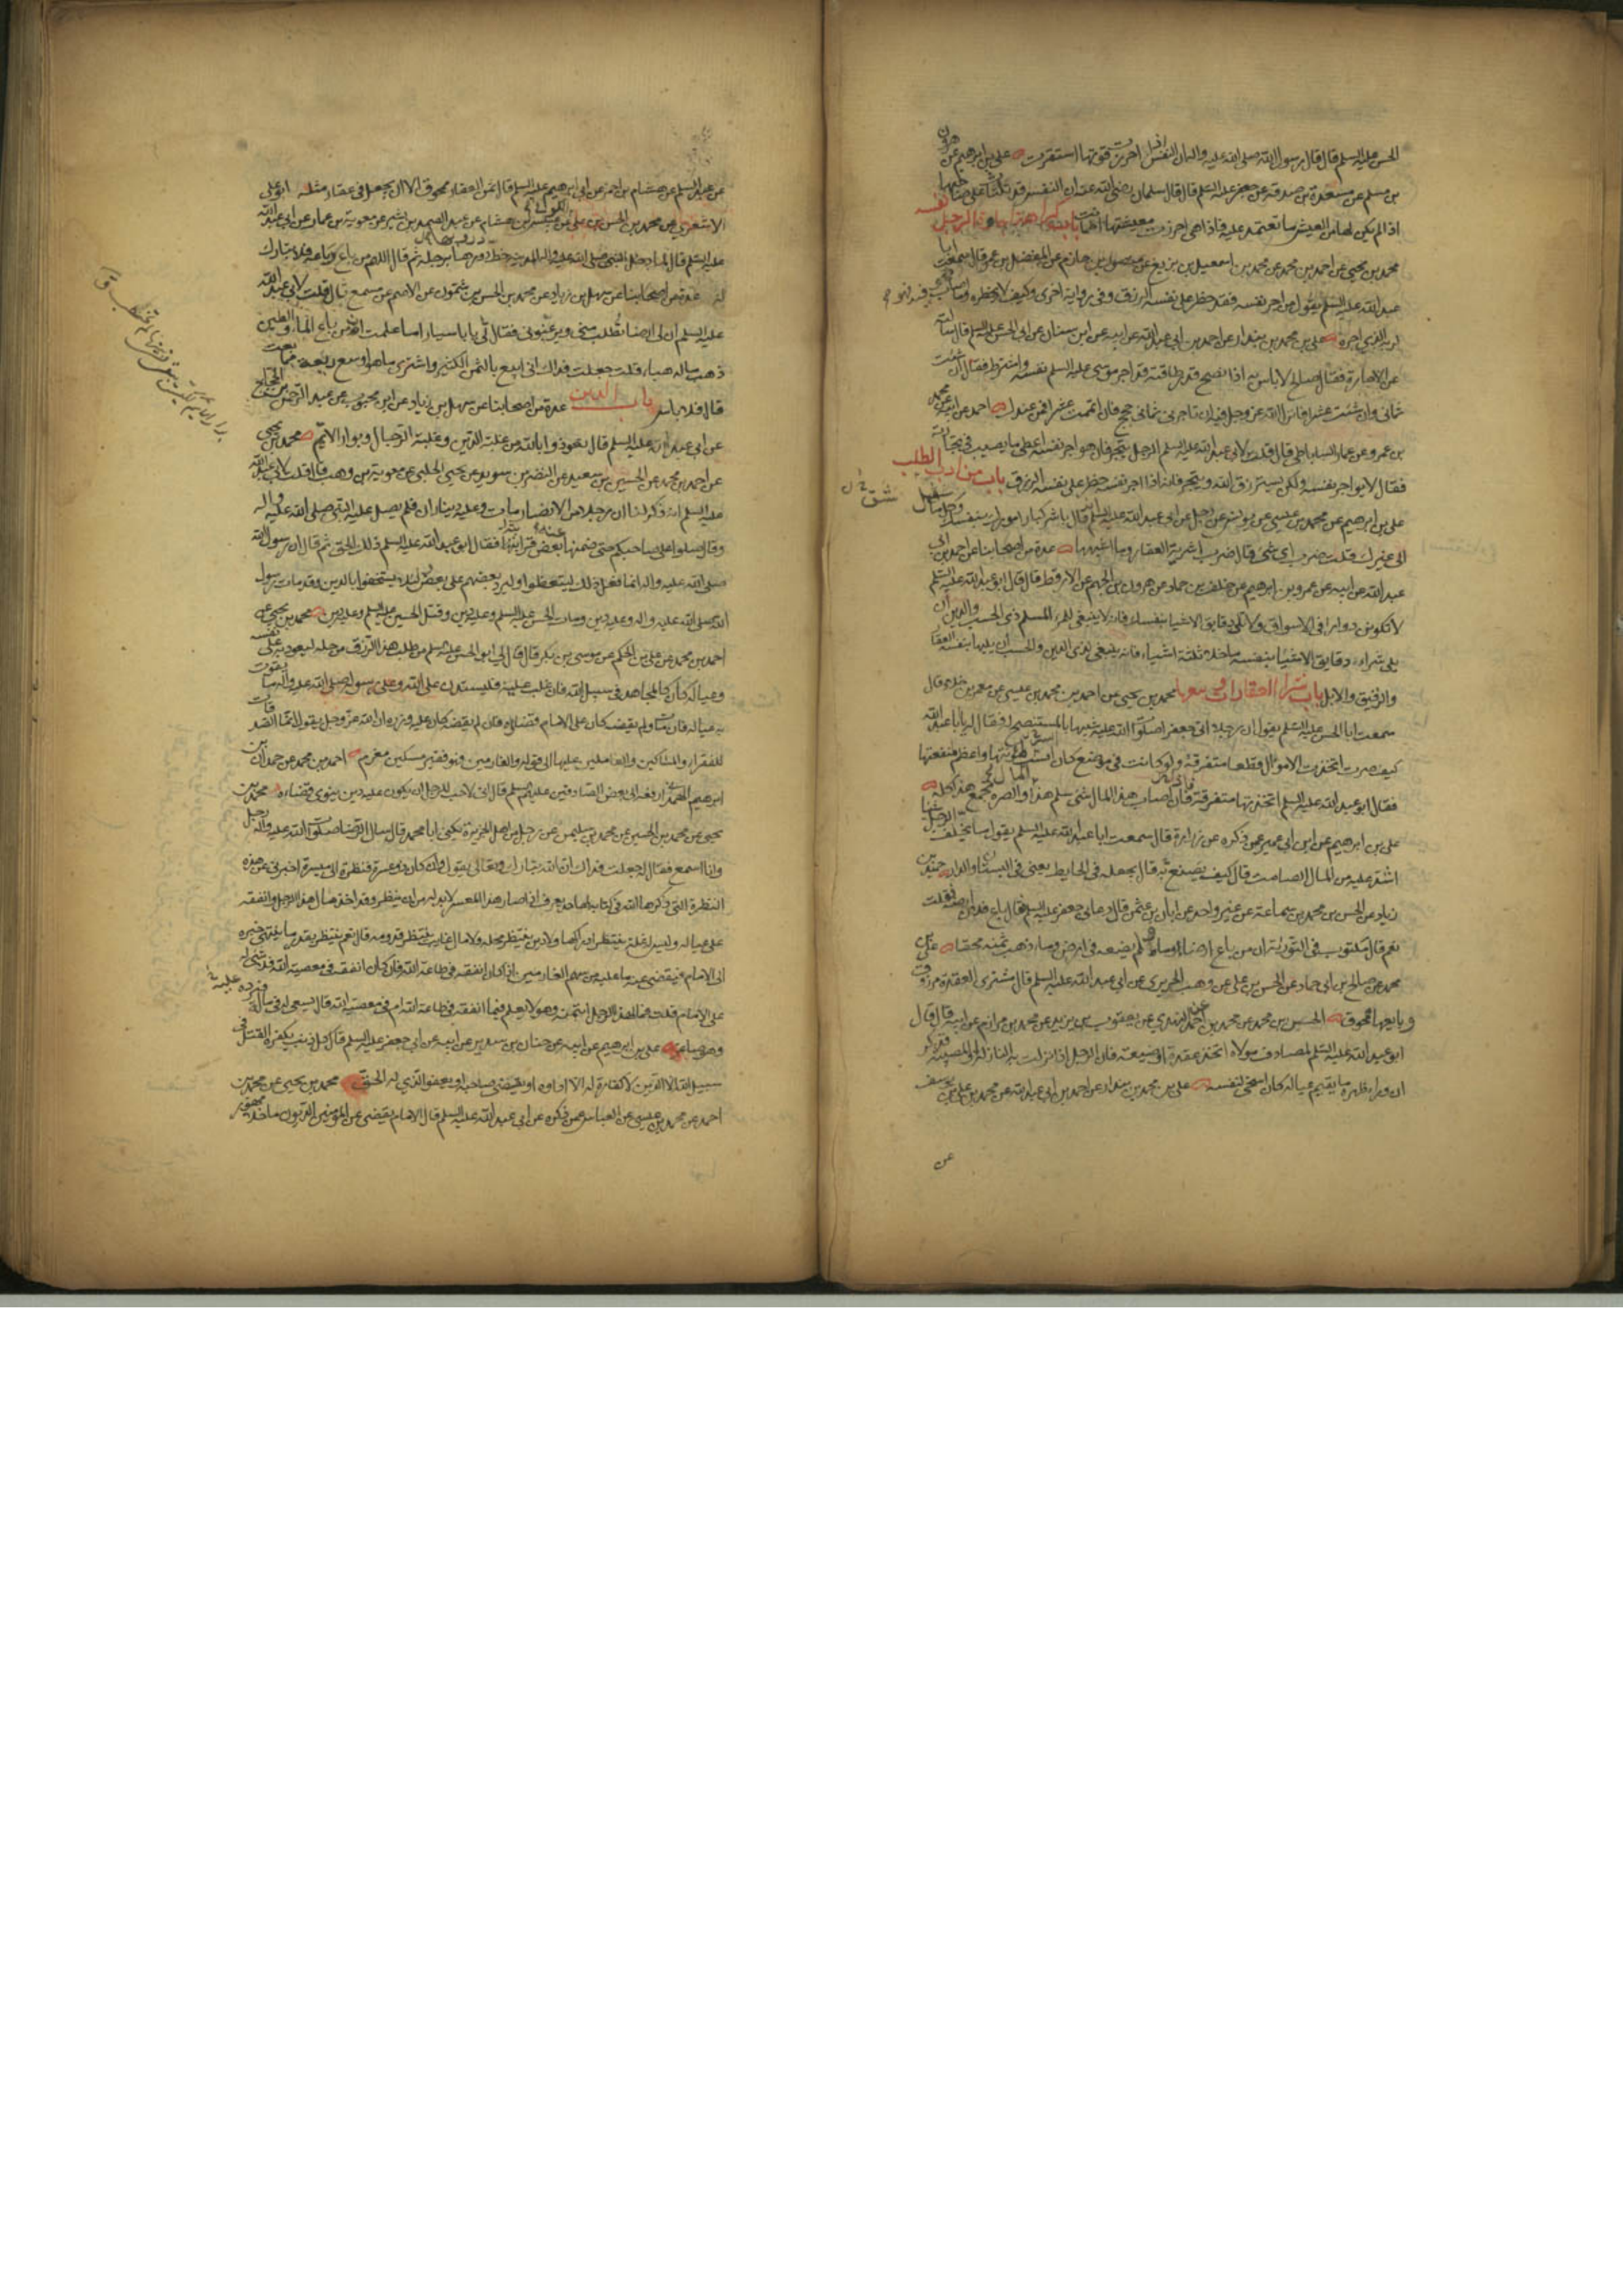 الحسن عليه السلم قال قال رسول الله صلى الله عليه واله ان النفس اذا احرزت قوتها استقرت علي بن ابرهيم عن هرون
بن مسلم عن مسعدة بن صدقة عن جعفر عليه السلم قال قال سلمان رضي الله عنه ان النفس قد تلتاث على صاحبها
اذا لم يكن لها من العيش ما تعتمد عليه فاذا هي احرزت معيشتها اطمأنت باب كراهة اجارة الرجل نفسه
محمد بن يحيى عن احمد بن محمد عن محمد بن اسمعيل بن بزيع عن منصور بن يونس عن المفضل بن عمر قال سمعت ابا
عبد الله عليه السلم يقول من اجر نفسه فقد حظر على نفسه الرزق وفي رواية اخرى وكيف لا يحظره وما اصاب فيه فهو
لربه الذي اجره علي بن محمد بن بندار عن احمد بن ابي عبد الله عن ابيه عن ابن سنان عن ابي الحسن عليه السلم قال سألته
عن الاجارة فقال صالح لا باس به اذا نصح قدر طاقته قد اجر موسى عليه السلم نفسه واشترط فقال ان شئت
ثماني وان شئت عشرا فانزل الله عز وجل فيه ان تاجرني ثماني حجج فان اتممت عشرا فمن عندك احمد عن ابيه عن محمد
بن عمرو عن عمار الساباطي قال قلت لابي عبد الله عليه السلم الرجل يتجر فان هو اجر نفسه اعطي ما يصيب في تجارته
فقال لا يواجر نفسه ولكن يسترزق الله ويتجر فانه اذا اجر نفسه حظر على نفسه الرزق باب من ادب الطلب
علي بن ابرهيم عن محمد بن عيسى عن يونس عن رجل عن ابي عبد الله عليه السلم قال باشر كبار امورك بنفسك وكل ما سفل
الى غيرك قلت ضرب اي شيء قال ضرب اشرية العقار وما اشبهها عدة من اصحابنا عن احمد بن ابي
عبد الله عن ابيه عن عمرو بن ابرهيم عن خلف بن حماد عن هرون بن الجهم عن الارقط قال قال لي ابو عبد الله عليه السلم
لا تكونن دوارا في الاسواق ولا تلي دقايق الاشياء بنفسك فانه لا ينبغي للمرء المسلم ذي الحسب والدين ان
يلي شراء دقايق الاشياء بنفسه ما خلا ثلثة اشياء فانه ينبغي لذي الدين والحسب ان يليها بنفسه العقار
والرقيق والابل باب شراء العقارات وبيعها محمد بن يحيى عن احمد بن محمد بن عيسى عن معمر بن خلاد قال
سمعت ابا الحسن عليه السلم يقول ان رجلا اتى جعفرا صلوات الله عليه شبيها بالمستنصح له فقال له يا ابا عبد الله
كيف صرت اتخذت الاموال قطعا متفرقة ولو كانت في موضع كان ايسر لمؤنتها واعظم لمنفعتها
فقال ابو عبد الله عليه السلم اتخذتها متفرقة فان اصاب هذا المال شيء سلم هذا المال والصرة تجمع هذا كله
علي بن ابرهيم عن ابيه عن ابن ابي عمير عمن ذكره عن زرارة قال سمعت ابا عبد الله عليه السلم يقول ما يخلف الرجل شيئا
اشد عليه من المال الصامت قال كيف يصنع به قال يجعله في الحايط يعني في البستان او الدار حميد بن
زياد عن الحسن بن محمد بن سماعة عن غير واحد عن ابان بن عثمن قال دعاني جعفر عليه السلم فقال باع فلان ارضه فقلت
نعم قال مكتوب في التورية ان من باع ارضا او ماء ولم يضعه في ارض وماء ذهب ثمنه محقا علي بن
محمد عن صالح بن ابي حماد عن الحسن بن علي عن وهب الحريري عن ابي عبد الله عليه السلم قال مشتري العقدة مرزوق
وبايعها ممحوق الحسين بن محمد عن محمد بن احمد النهدي عن يعقوب بن يزيد عن محمد بن مرازم عن ابيه قال قال
ابو عبد الله عليه السلم لمصادف مولاه اتخذ عقدة او ضيعة فان الرجل اذا نزلت به النازلة او المصيبة فذكر
ان وراء ظهره ما يقيم عياله كان اسخى لنفسه علي بن محمد بن بندار عن احمد بن ابي عبد الله عن محمد بن علي بن يوسف
عن
عن عبد السلم عن هشام بن احمر عن ابي ابرهيم عليه السلم قال ثمن العقار ممحوق الا ان يجعل في عقار مثله ابو علي
الاشعري عن محمد بن الحسن بن علي الكوفي عن عبيس بن هشام عن عبد الصمد بن بشير عن معوية بن عمار عن ابي عبد الله
عليه السلم قال لما دخل النبي صلى الله عليه واله المدينة خط دورها برجله ثم قال اللهم من باع رباعه فلا تبارك
له عدة من اصحابنا عن سهل بن زياد عن محمد بن الحسن بن شمون عن الاصم عن مسمع قال قلت لابي عبد الله
عليه السلم ان لي ارضا تطلب مني ويرغبوني فقال لي يا با سيار اما علمت انه من باع الماء والطين
ذهب ماله هباء قلت جعلت فداك اني ابيع بالثمن الكثير واشتري ما هو اوسع ربعة مما بعت
قال فلا باس باب الدين عدة من اصحابنا عن سهل بن زياد عن ابن محبوب عن عبد الرحمن بن الحجاج
عن ابي عبد الله عليه السلم قال تعوذوا بالله من غلبة الدين وغلبة الرجال وبوار الايم محمد بن يحيى
عن احمد بن محمد عن الحسين بن سعيد عن النضر بن سويد عن يحيى الحلبي عن معوية بن وهب قال قلت لابي عبد الله
عليه السلم انه ذكر لنا ان رجلا من الانصار مات وعليه ديناران فلم يصل عليه النبي صلى الله عليه واله
وقال صلوا على صاحبكم حتى ضمنها عنه بعض قرابته فقال ابو عبد الله عليه السلم ذلك الحق ثم قال ان رسول الله
صلى الله عليه واله انما فعل ذلك ليتعظوا وليرد بعضهم على بعض لئلا يستخفوا بالدين وقد مات رسول
الله صلى الله عليه واله وعليه دين ومات الحسن عليه السلم وعليه دين وقتل الحسين عليه السلم وعليه دين محمد بن يحيى عن
احمد بن محمد عن علي بن الحكم عن موسى بن بكر قال قال لي ابو الحسن عليه السلم من طلب هذا الرزق من حله ليعود به على نفسه
وعياله كان كالمجاهد في سبيل الله فان غلب عليه فليستدن على الله وعلى رسوله صلى الله عليه واله ما يقوت
به عياله فان مات ولم يقضه كان على الامام قضاؤه فان لم يقضه كان عليه وزره ان الله عز وجل يقول انما الصدقات
للفقراء والمساكين والعاملين عليها الى قوله والغارمين فهو فقير مسكين مغرم احمد بن محمد عن حمدان بن
ابرهيم الهمداني رفعه الى بعض الصادقين عليهم السلم قال اني لاحب للرجل ان يكون عليه دين ينوي قضاءه محمد بن
يحيى عن محمد بن الحسين عن محمد بن سليمن عن رجل من اهل الجزيرة يكنى ابا محمد قال سال الرضا صلوات الله عليه واله رجل
وانا اسمع فقال له جعلت فداك ان الله تبارك وتعالى يقول وان كان ذو عسرة فنظرة الى ميسرة اخبرني عن هذه
النظرة التي ذكرها الله في كتابه لها حد يعرف اذا صار هذا المعسر لا بد له من ان ينظر وقد اخذ مال هذا الرجل وانفقه
على عياله وليس له غلة ينتظر ادراكها ولا دين ينتظر محله ولا مال غايب ينتظر قدومه قال نعم ينتظر بقدر ما ينتهي خبره
الى الامام فيقضي عنه ما عليه من سهم الغارمين اذا كان انفقه في طاعة الله فان كان انفقه في معصية الله فلا شيء له
على الامام قلت فما لهذا الرجل ائتمنه وهو لا يعلم فيما انفقه في طاعة الله ام في معصية الله قال يسعى له في ماله فيرده عليه
وهو صاغر علي بن ابرهيم عن ابيه عن حنان بن سدير عن ابيه عن ابي جعفر عليه السلم قال كل ذنب يكفره القتل في
سبيل الله الا الدين لا كفارة له الا اداؤه او يقضي صاحبه او يعفو الذي له الحق محمد بن يحيى عن محمد بن
احمد عن محمد بن عيسى عن العباس عمن ذكره عن ابي عبد الله عليه السلم قال الامام يقضي عن المؤمنين الديون ما خلا مهور